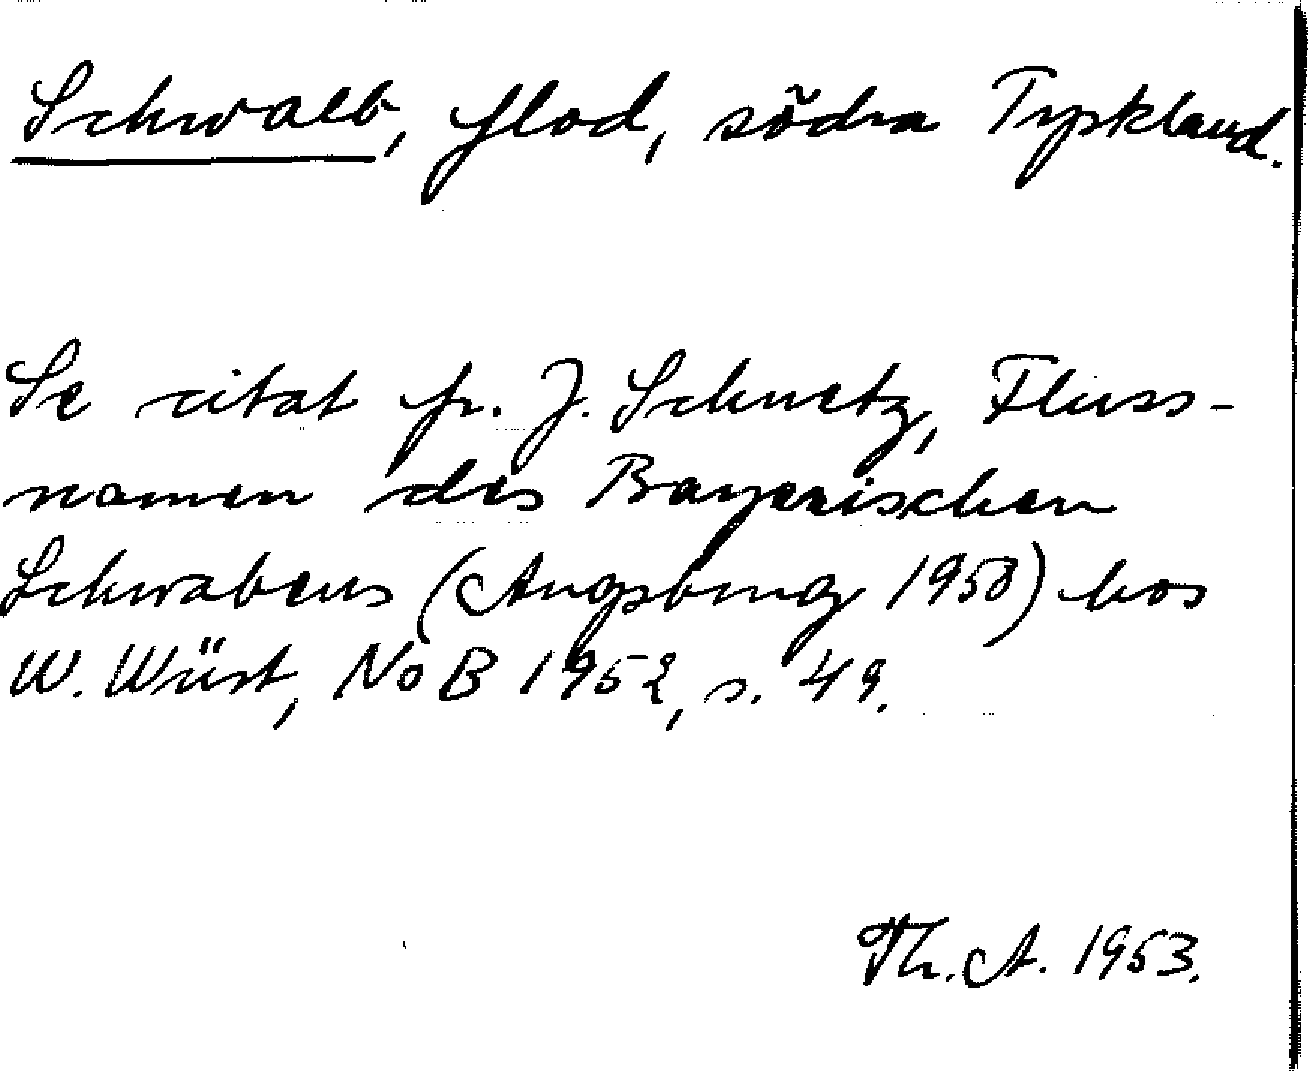 Schwalb, flod, södra Tyskland.
Se citat fr. J. Schnetz, Fluss-
namen des Bayerischen
Schwabens (Augsburg 1950) hos
W. Wüst, NoB 1952, s. 49.
Th. A. 1953.